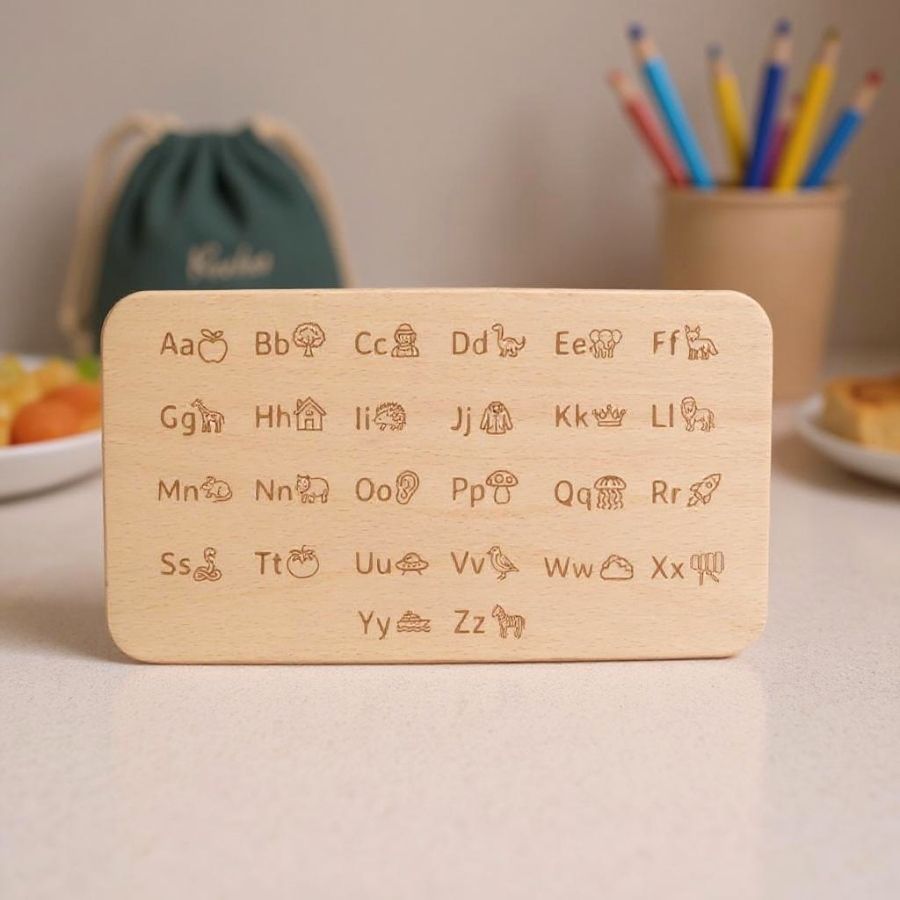 Aa Bb Cc Dd Ee Ff
Gg Hh Ii Jj Kk Ll
Mn Nn Oo Pp Qq Rr
Ss Tt Uu Vv Ww Xx
Yy Zz